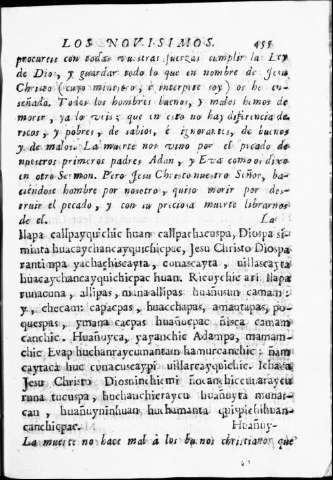 LOS NOVISIMOS. 455
procureis con todas vuestras fuerzas cumplir la Ley
de Dios, y guardar todo lo que en nombre de Jesu
Christo (cuyo ministro, é interprete soy) os he en-
señado. Todos los hombres buenos, y malos hemos de
morir, ya lo veis que en esto no hay diferencia de
ricos, y pobres, de sabios, é ignorantes, de buenos
y de malos. La muerte nos vino por el pecado de
nuestros primeros padres Adan, y Eva como os dixe
en otro Sermon. Pero Jesu Christo nuestro Señor, ha-
ciendose hombre por nosotro, quiso morir por des-
truir el pecado, y con su preciosa muerte librarnos
de el. La
llapa callpayquichic huan callpachacuspa, Diospa si-
minta huacaychancayquichicpac, Jesu Christo Diospa
rantinpa yachachiscayta, conascayta, uillascayta
huacaychancayquichicpac huan. Ricuychic ari llapa
runacuna, allipas, mana allipas huañusun camam:
y, checam: capacpas, huacchapas, amautapas, po-
quespas, ymana caepas huañucpac ñisca camam
canchic. Huañuyca, yayanchic Adampa, maman-
chic Evap huchanraycumantam hamurcanchic: ñam
caytaca huc conacuscaypi uillarcayquichic. Ichaca
Jesu Christo Diosninchicmi ñocanchiccunarayeu
runa tucuspa, huchauchicraycu huañuyta munar-
can, huañuyninhuan huchamanta quispichihuan-
canchicpac. Huañuy-
La muerte no hace mal à los buenos christianos que